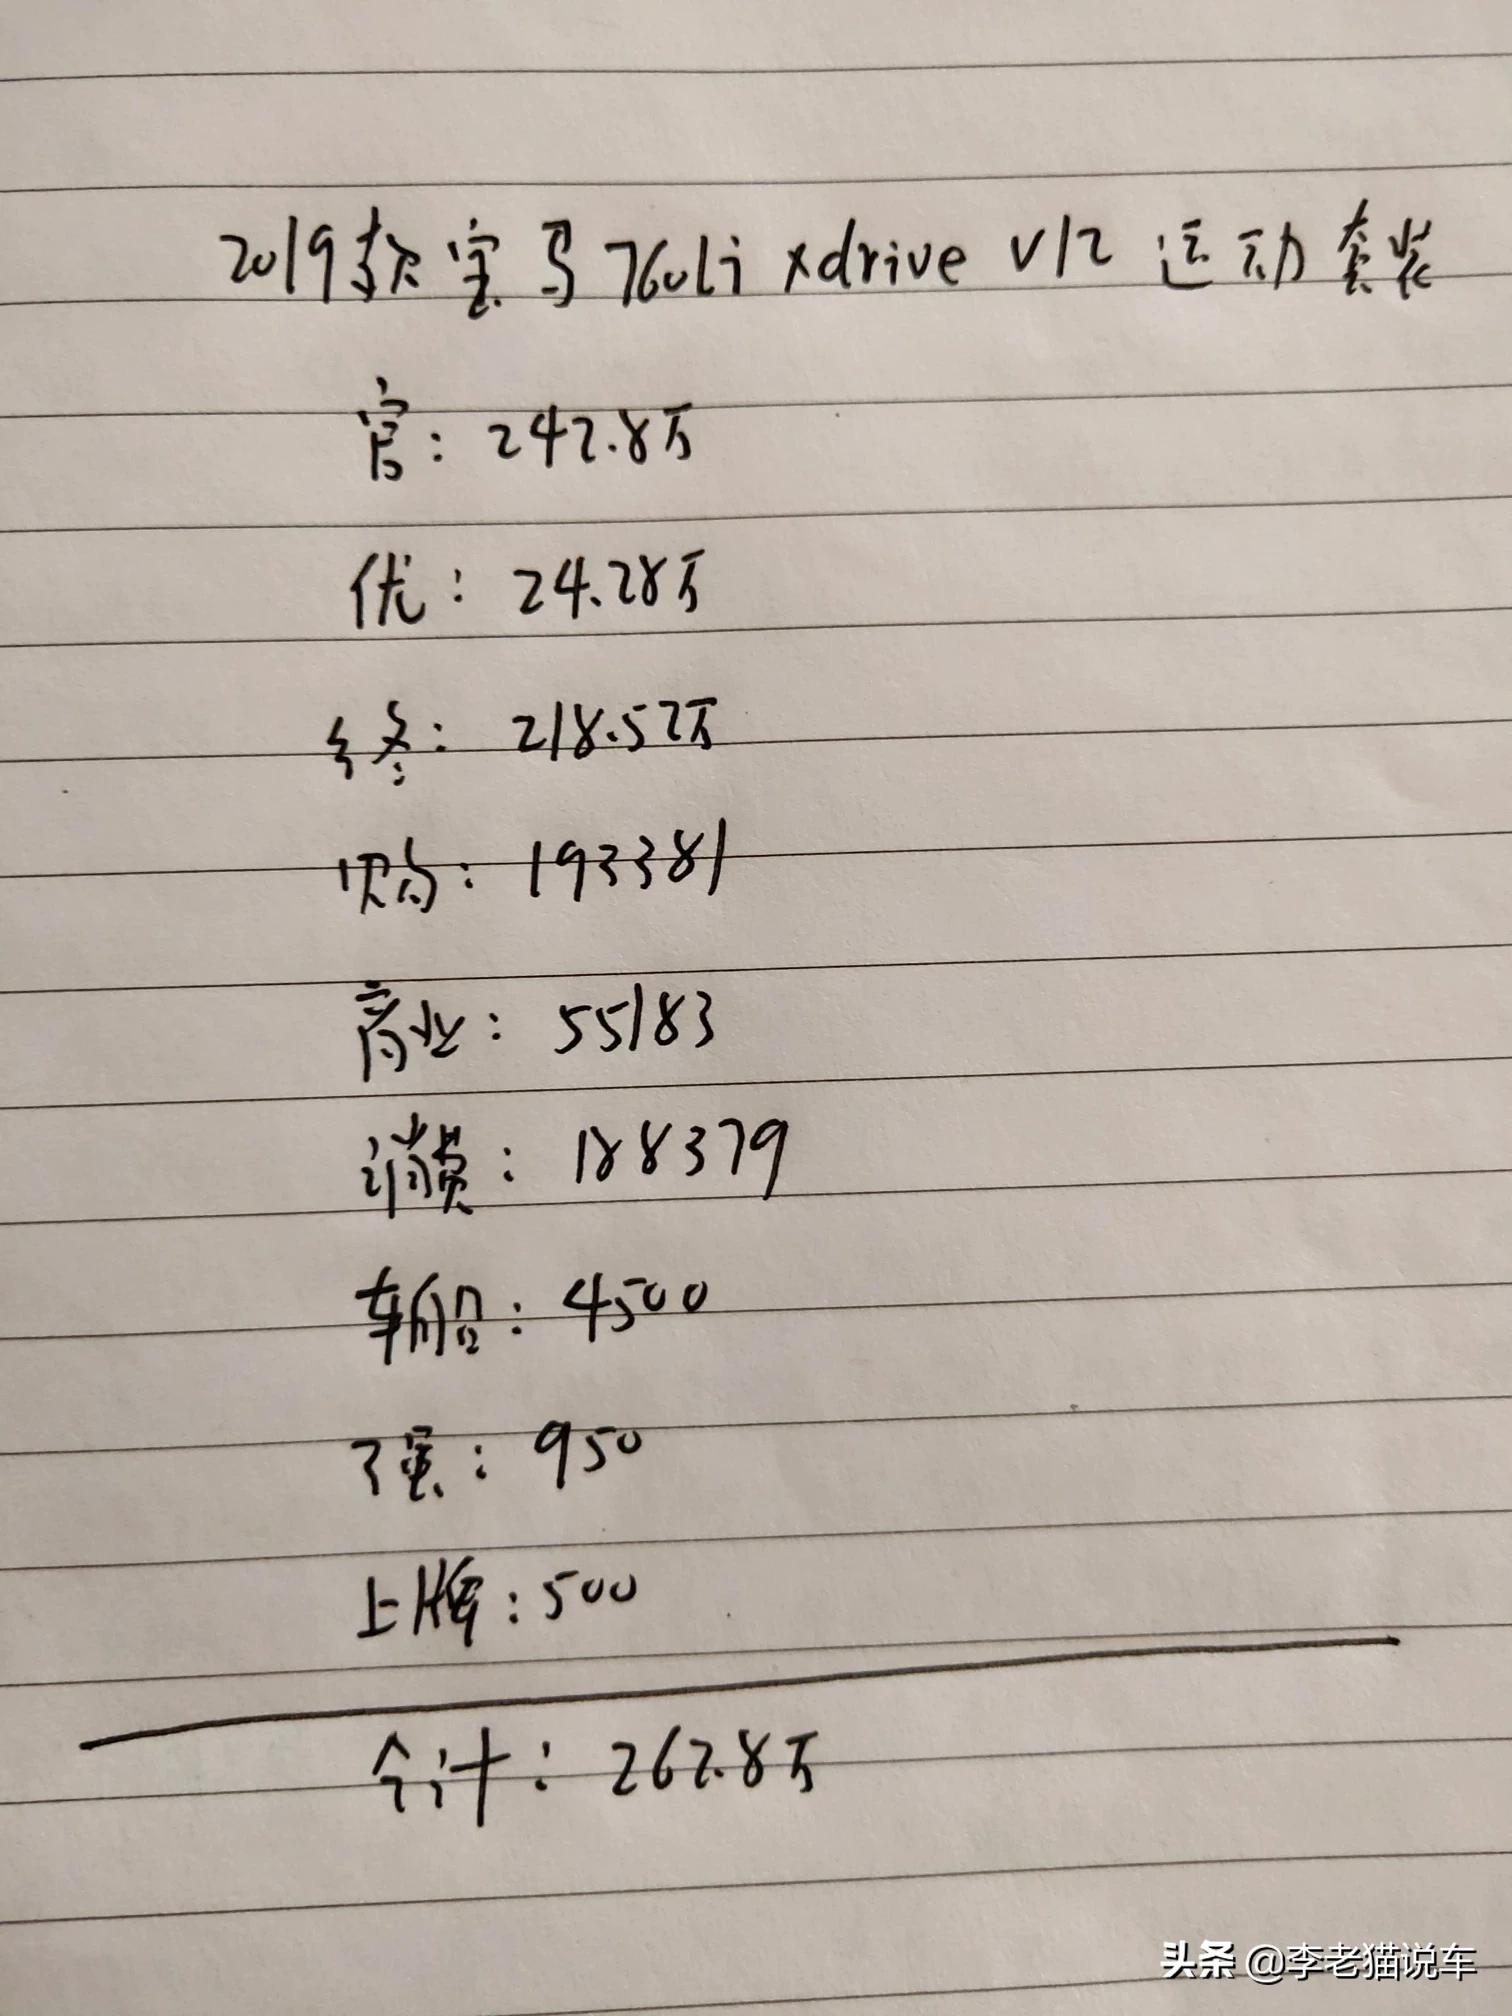 2019款宝马760Li xdrive V12 运动套装
官：242.8万
优：24.28万
终：218.52万
购：193381
商业：55183
消费：188379
车船：4500
强：950
上牌：500
合计：262.8万
头条 @李老猫说车